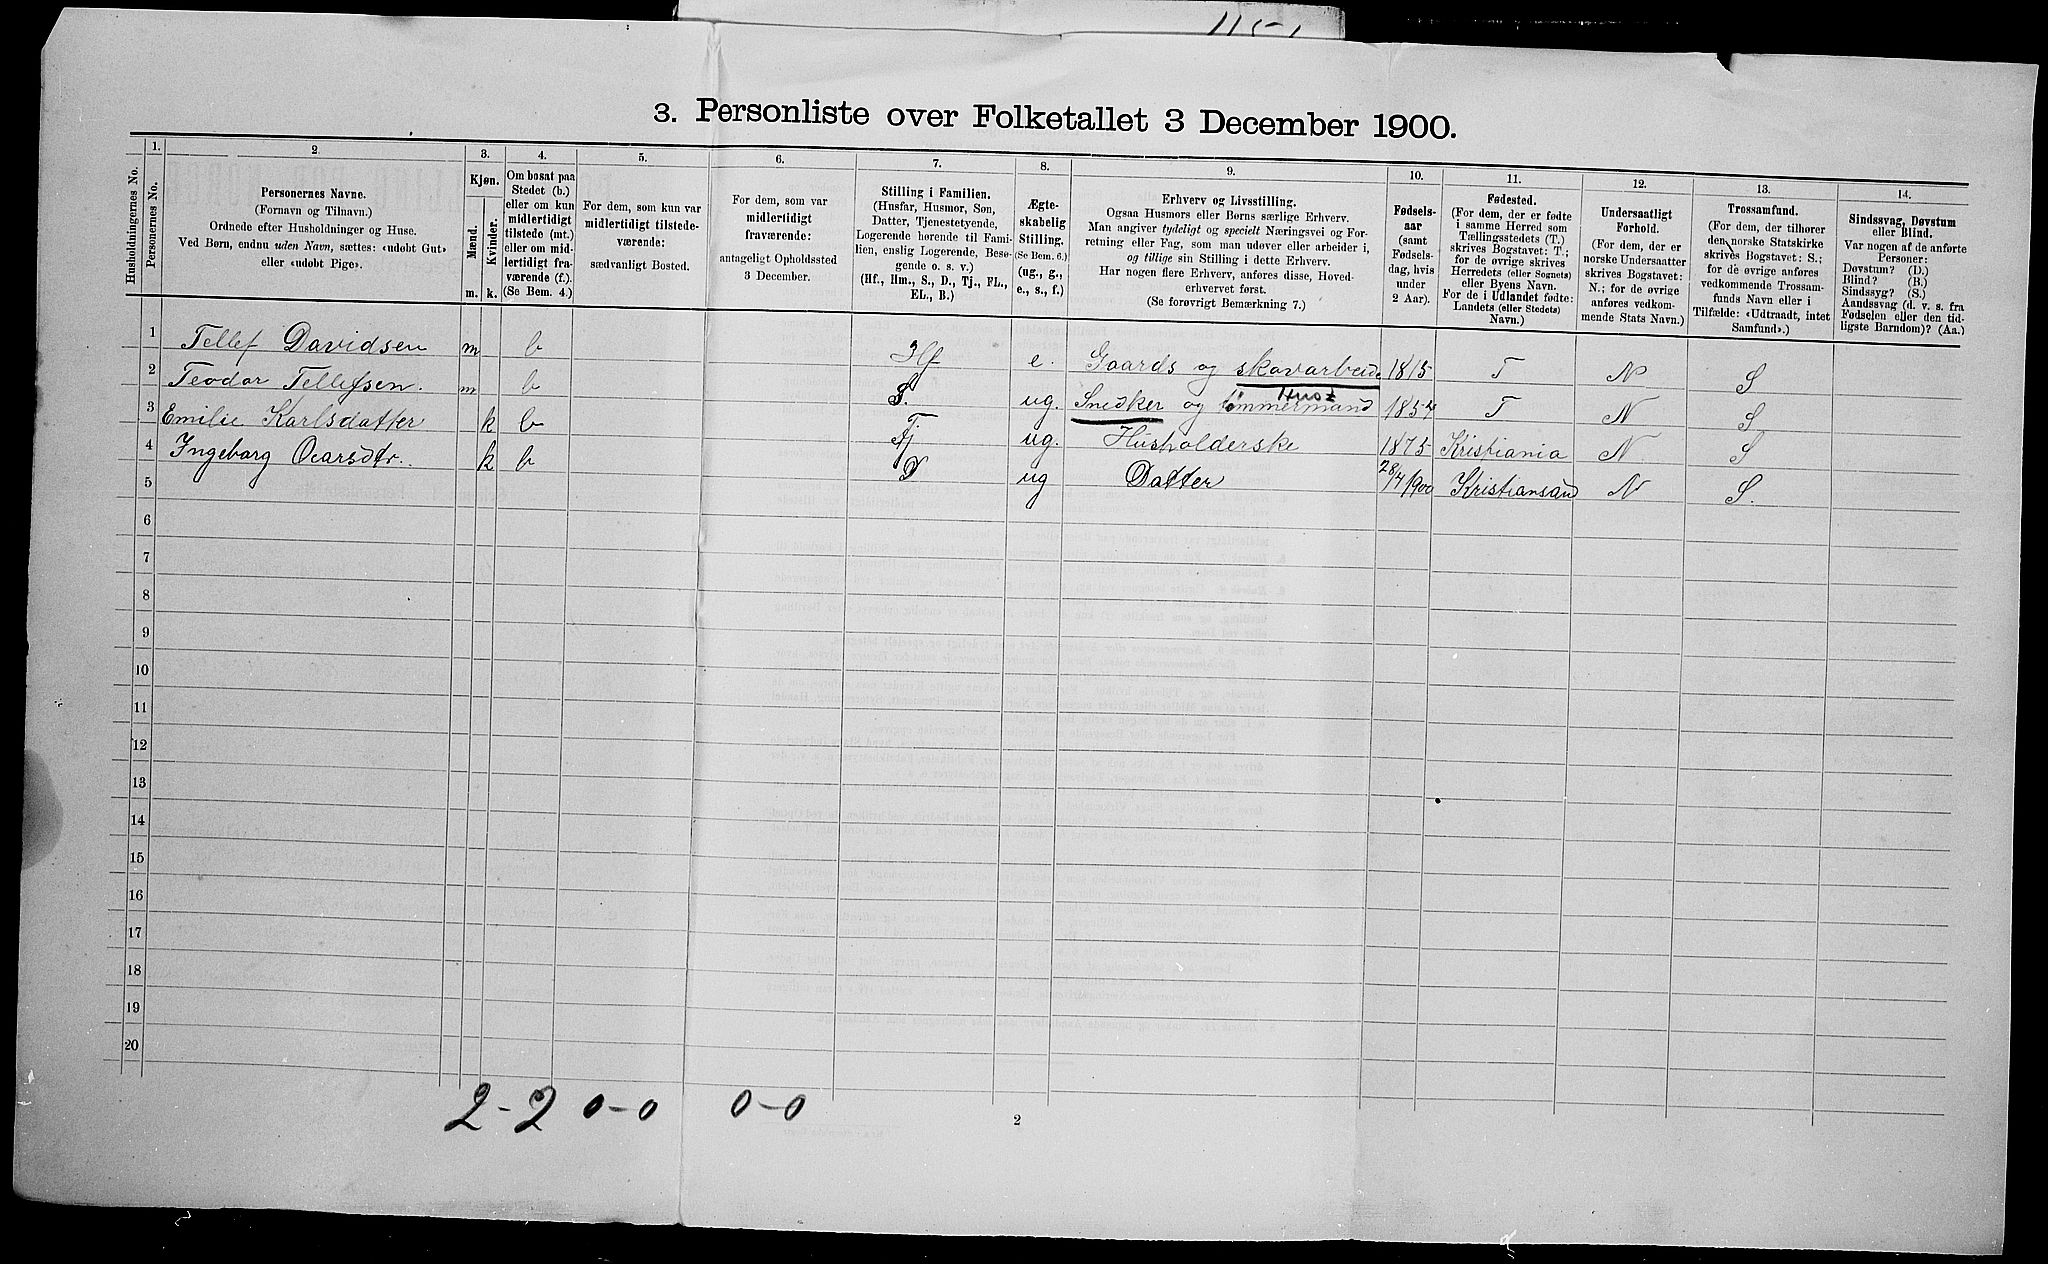 1151
3. Personliste over Folketallet 3 December 1900.
1. 2. 3. 4. 5. 6. 7. 8. 9. 10. 11. 12. 13. 14.
Husholdningernes No.
Personernes No.
Personernes Navne.
(Fornavn og Tilnavn.)
Ordnede efter Husholdninger og Huse.
Ved Børn, endnu uden Navn, sættes: «udøbt Gut»
eller «udøbt Pige».
Kjøn.
Mænd.
Kvinder.
m. k.
Om bosat paa
Stedet (b.)
eller om kun
midlertidigt
tilstede (mt.)
eller om mid-
lertidigt fra-
værende (f.).
(Se Bem. 4.)
For dem, som kun var
midlertidigt tilstede-
værende:
sædvanligt Bosted.
For dem, som var
midlertidigt
fraværende:
antageligt Opholdssted
3 December.
Stilling i Familien.
(Husfar, Husmor, Søn,
Datter, Tjenestetyende,
Logerende hørende til Fami-
lien, enslig Logerende, Besø-
gende o. s. v.)
(Hf., Hm., S., D., Tj., FL.,
EL., B.)
Ægte-
skabelig
Stilling.
(Se Bem. 6.)
(ug., g.,
e., s., f.)
Erhverv og Livsstilling.
Ogsaa Husmors eller Børns særlige Erhverv.
Man angiver tydeligt og specielt Næringsvei og For-
retning eller Fag, som man udøver eller arbeider i,
og tillige sin Stilling i dette Erhverv.
Har nogen flere Erhverv, anføres disse, Hoved-
erhvervet først.
(Se forøvrigt Bemærkning 7.)
Fødsels-
aar
(samt
Fødsels-
dag, hvis
under
2 Aar).
Fødested.
(For dem, der er fødte
i samme Herred som
Tællingsstedets (T.)
skrives Bogstavet: T.;
for de øvrige skrives
Herredets (eller Sognets)
eller Byens Navn.
For de i Udlandet fødte:
Landets (eller Stedets)
Navn.)
Undersaatligt
Forhold.
(For dem, der er
norske Undersaatter
skrives Bogstavet:
N.; for de øvrige
anføres vedkom-
mende Stats Navn.)
Trossamfund.
(For dem, der tilhører
den norske Statskirke
skrives Bogstavet: S.;
for de øvrige anføres
vedkommende Trossam-
funds Navn eller i
Tilfælde: «Udtraadt, intet
Samfund».)
Sindssvag, Døvstum
eller Blind.
Var nogen af de anførte
Personer:
Døvstum? (D.)
Blind? (B.)
Sindssyg? (S.)
Aandssvag (d. v. s. fra
Fødselen eller den tid-
ligste Barndom)? (Aa.)
1 Tellef Davidsen m b Hf e. Gaards og skovarbeid. 1815 T N S
2 Teodor Tellefsen. m b S. ug. Snedker og tømmermand Hus 1854 T N S
3 Emilie Karlsdatter k b Tj ug. Husholderske 1875 Kristiania N S
4 Ingeborg Oscarsdtr. k b D ug Datter 28/4 1900 Kristiansand N S.
5
6
7
8
9
10
11
12
13
14
15
16
17
18
19
20
2-2 0-0 0-0
2